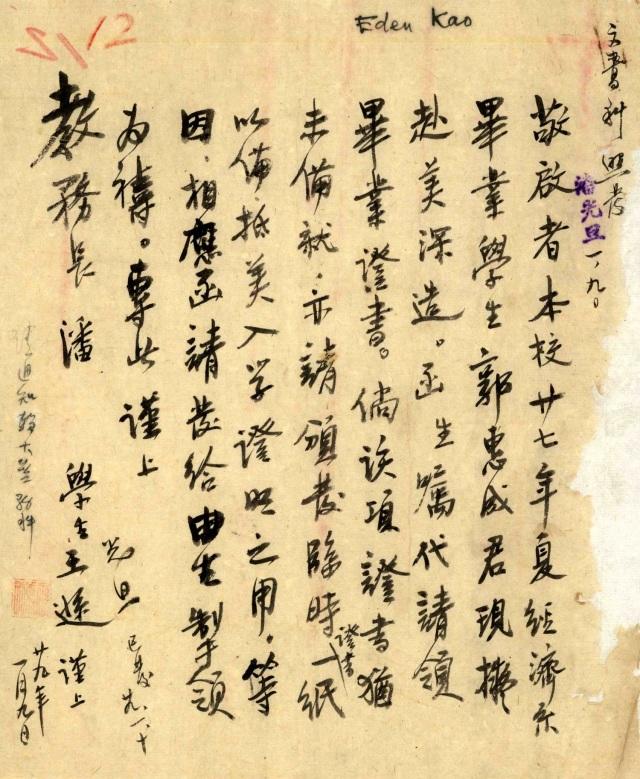 Eden Kao
文書科 照發
潘光旦 一、九。
敬啟者本校廿七年夏經濟系
畢業學生郭惠成君現擬
赴美深造。函生囑代請領
畢業證書。倘該項證書猶
未備就，亦請頒發臨時證書一紙
以備抵美入学證明之用，等
因，相應函請發給由生制領
為禱。專此 謹上
教務長潘
光旦
學生王遜 謹上
廿九年
一月九日